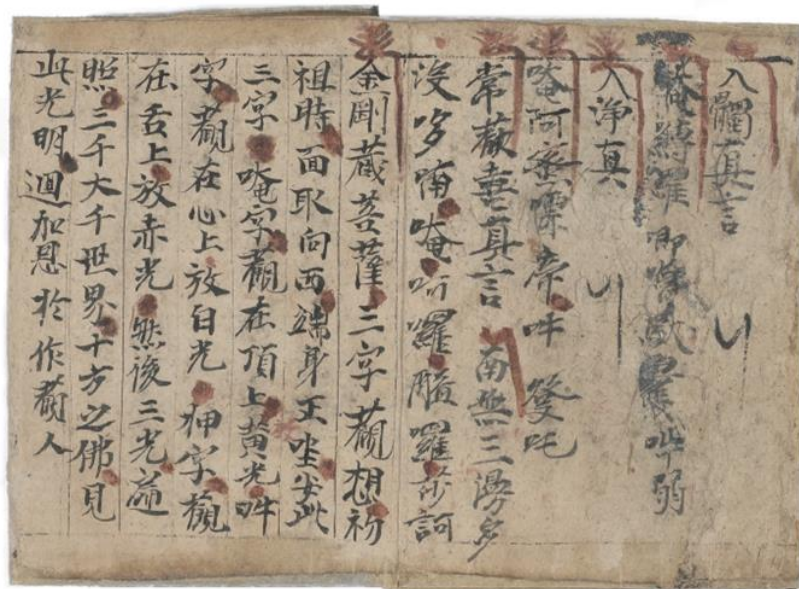 入髑真言
唵縛羅唧
入淨真
唵阿蜜㗚帝吽登吒
常歡喜真言 南無三湯多
沒多喃唵呵囉脂囉莎訶
金剛藏菩薩三字觀想初
祖時面取向西端身正坐坐此
三字 唵字觀在頂上黃光吽
字觀在心上放白光 𤙖字觀
在舌上放赤光 然後三光遍
照三千大千世界十方之佛見
此光明迴加恩於作觀人